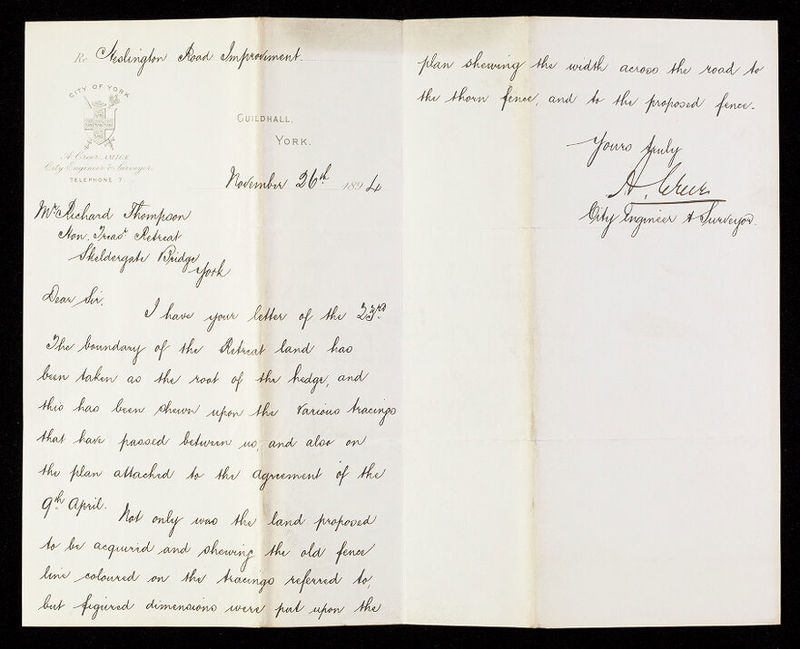 Re Heslington Road Improvement.
CITY OF YORK
GUILDHALL,
YORK.
A. Creer, A.M.I.C.E.
City Engineer & Surveyor.
TELEPHONE 7.
November 26th 1894
Mr Richard Thompson
Hon. Treasr Retreat
Skeldergate Bridge
York
Dear Sir.
I have your letter of the 23rd
The boundary of the Retreat land has
been taken as the root of the hedge, and
this has been shewn upon the various tracings
that have passed between us, and also on
the plan attached to the agreement of the
9th April.
Not only was the land proposed
to be acquired and shewing the old fence
line coloured on the tracings referred to,
but figured dimensions were put upon the
plan shewing the width across the road to
the thorn fence, and to the proposed fence.
Yours truly
A. Creer
City Engineer & Surveyor.